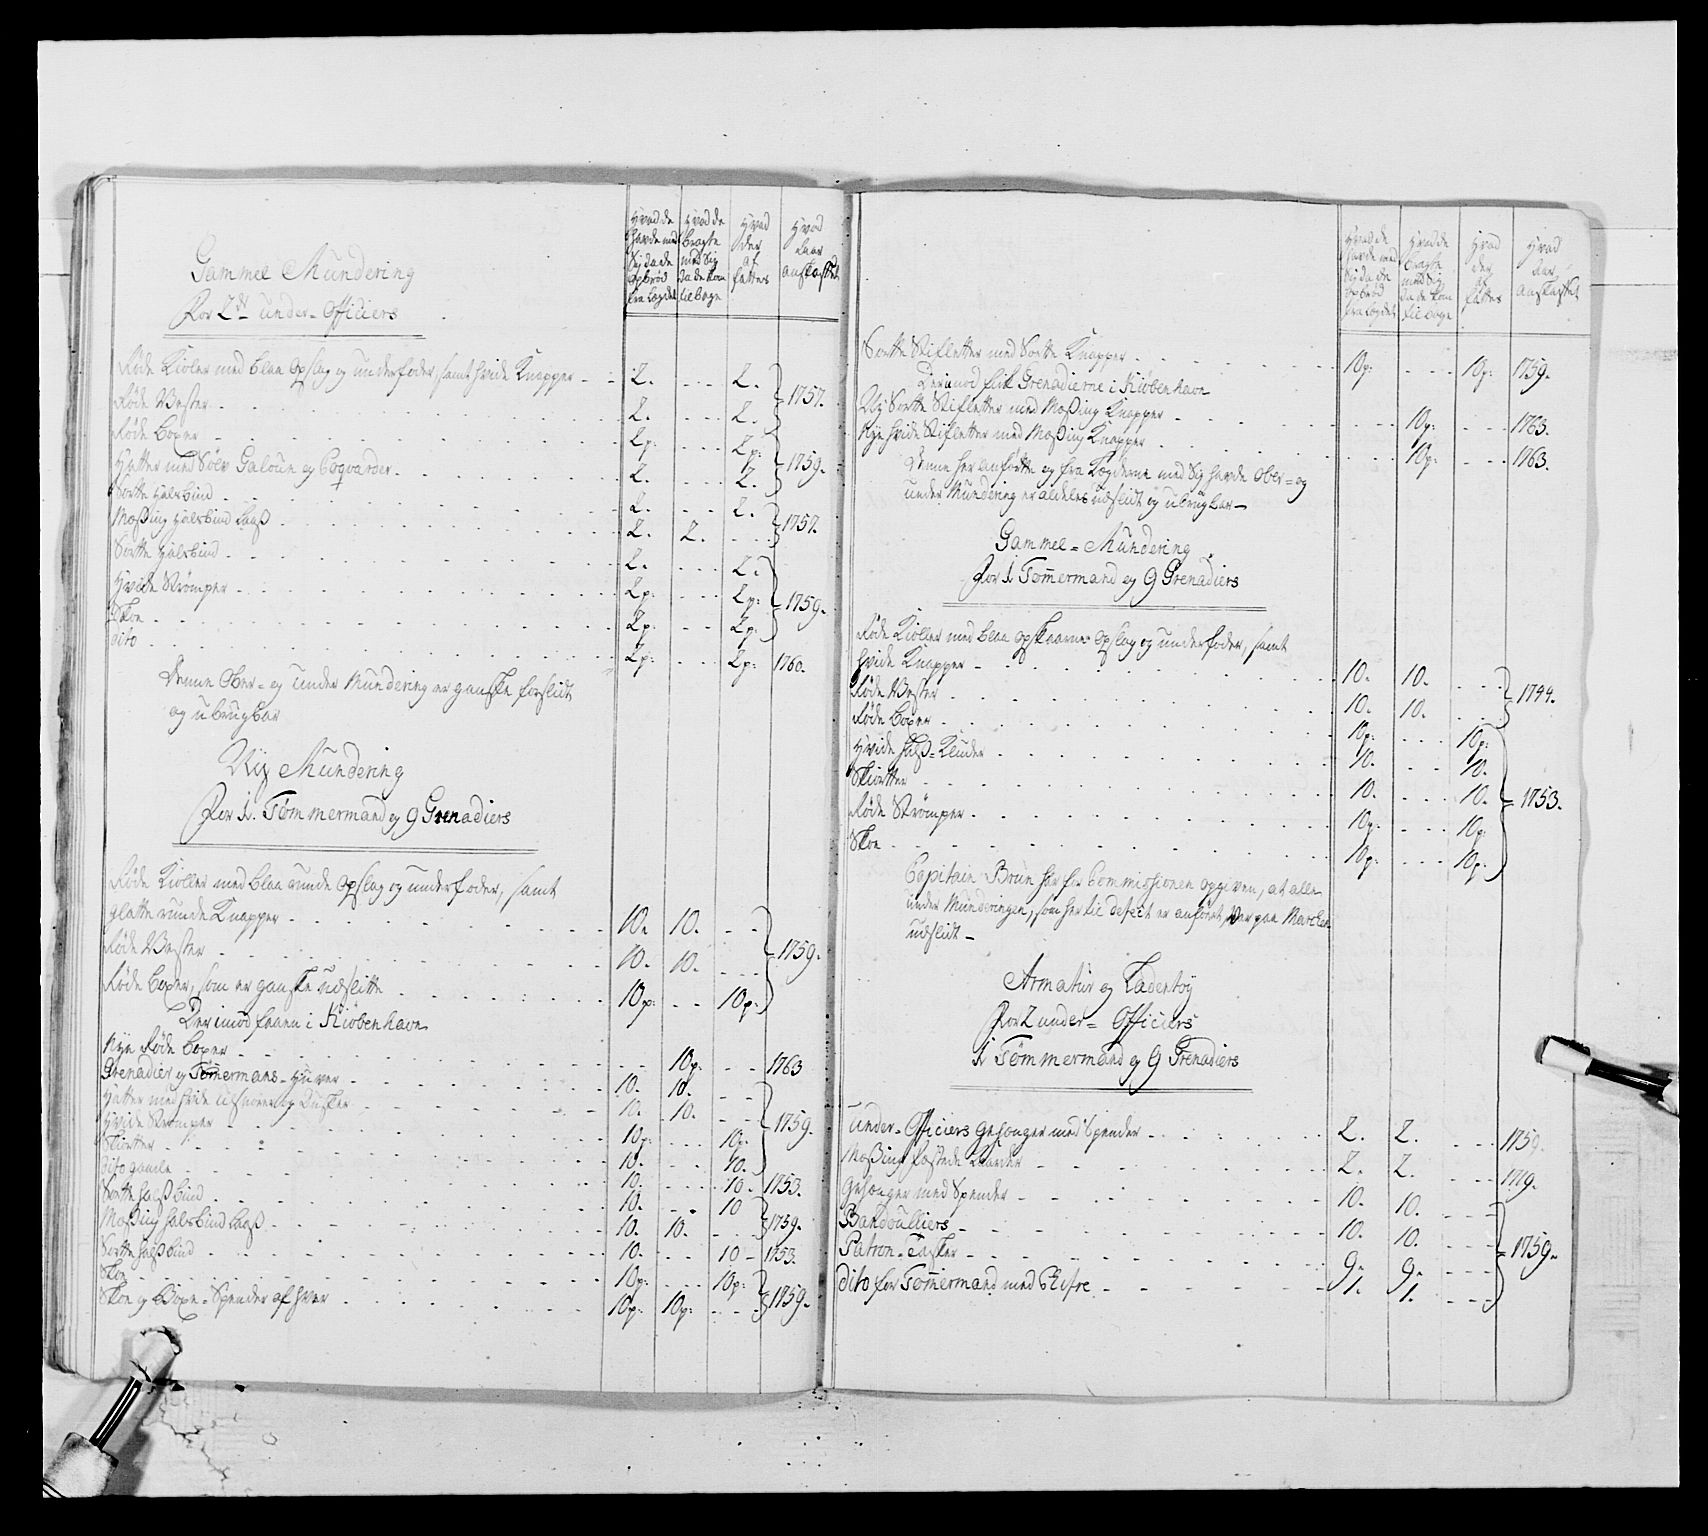 Hvad de havde med Sig da de opbrød fra Lægdet
Hvad de bragte med Sig da de kom tilbage
Hvad der af fattes
Hvad Aar anskaffet
Gammel Mundering
For 2de Under-Officiers
Røde Kioler med blaa Opslag og underfoder, samt hvide Knapper - - 2. - - - 2. } 1757.
Røde Vester - - 2. - - - 2.
Røde Boxer - - 2p: - - - 2p: } 1759.
Hatter med Sølv Galoun og Coqvarder - - 2. - - - 2.
Sorte Halsbind - - 2. - - - 2. } 1757.
Messing Halsbind Laaß - - 2. 2. - - -
Sorte Halsbind - - 2. - - - 2. } 1759.
Hvide Strømper - - 2p: - - - 2p:
Skoe - - 2p: - - - 2p:
dito - - 2p: - - - 2p: 1760.
Denne Ober- og Under Mundering er ganske forslidt
og ubrugbar
Ny Mundering
For 1. Tømmermand og 9 Grenadiers
Røde Kioller med blaa runde Opslag og underfoder, samt
glatte runde Knapper - - 10. 10. - - } 1759.
Røde Vester - - 10. 10. - - -
Røde Boxer, som er ganske udslitte - - 10p: - - 10p:
Derimod faaen i Kiøbenhavn
Nye Røde Boxer - - 10p: - - 1763
Grenadier og Tømermans-Huer - - 10. 10. - - } 1759.
Hatter med hvide Lidsnorer og Qusker - - 10. 10. - -
Hvide Strømper - - 10p: - - - 10p:
Skiorter - - 10. - - - 10.
dito gamle - - 10. - - - 10. 1753.
Sorte Halsbind - - 10. - - - 10 } 1759.
Messing Halsbind Laaß - - 10. 10. - - -
Sorte Halsbind - - 10. - - - 10 - 1753.
Skoe - - 10p: - - - 10p: } 1759.
Skoe og Boxe-Spender af hver - - 10p: 10p: - - -
Hvad de havde med Sig da de opbrød fra Lægdet
Hvad de bragte med Sig da de kom tilbage
Hvad der af fattes
Hvad Aar Anskaffet
Sorte Stifletter med Sorte Knapper - - 10p: - - - 10p: 1759.
Derimod fik Grenadierne i Kiøbenhavn
Ny Sorte Stifletter med Messing Knapper - - 10p: - - - 1763.
Nye hvide Stifletter med Messing Knapper - - 10p: - - - 1763.
Denne her anførte og fra Lægderne med Sig havde Ober- og
under Mundering er aldeles udslidt og ubrugbar -
Gammel-Mundering
For 1 Tømermand og 9 Grenadiers
Røde Kioller med blaa opskaarne Opslag og underfoder, samt
hvide Knapper - - 10. 10. - - - } 1744.
Røde Vester - - 10. 10. - - -
Røde Boxer - - 10p: - - - 10p: } 1753.
Hvide Halß-Kluder - - 10. - - - 10.
Skiorter - - 10. - - - 10.
Røde Strømper - - 10p: - - - 10p:
Skoe - - 10p: - - - 10p:
Capitain Brun har for Commissionen opgiven, at alle
under Munderingen, som her til defect er anført, var paa Marchen
udslidt -
Armatur og Ladertøy
For 2 under-Officiers
1 Tømmermand og 9 Grenadiers
Under-Officiers Gehænger med Spender - - 2. 2. - - - 1759.
Messing fæstede Kaarder - - 2. 2. - - - 1719.
Gehænger med Spender - - 10. 10. - - - } 1759.
Bandoulliers - - 10. 10. - - -
Patron-Tasker - - 9. 9. - - -
dito for Tømermand med Chifre - - 1. 1. - - -